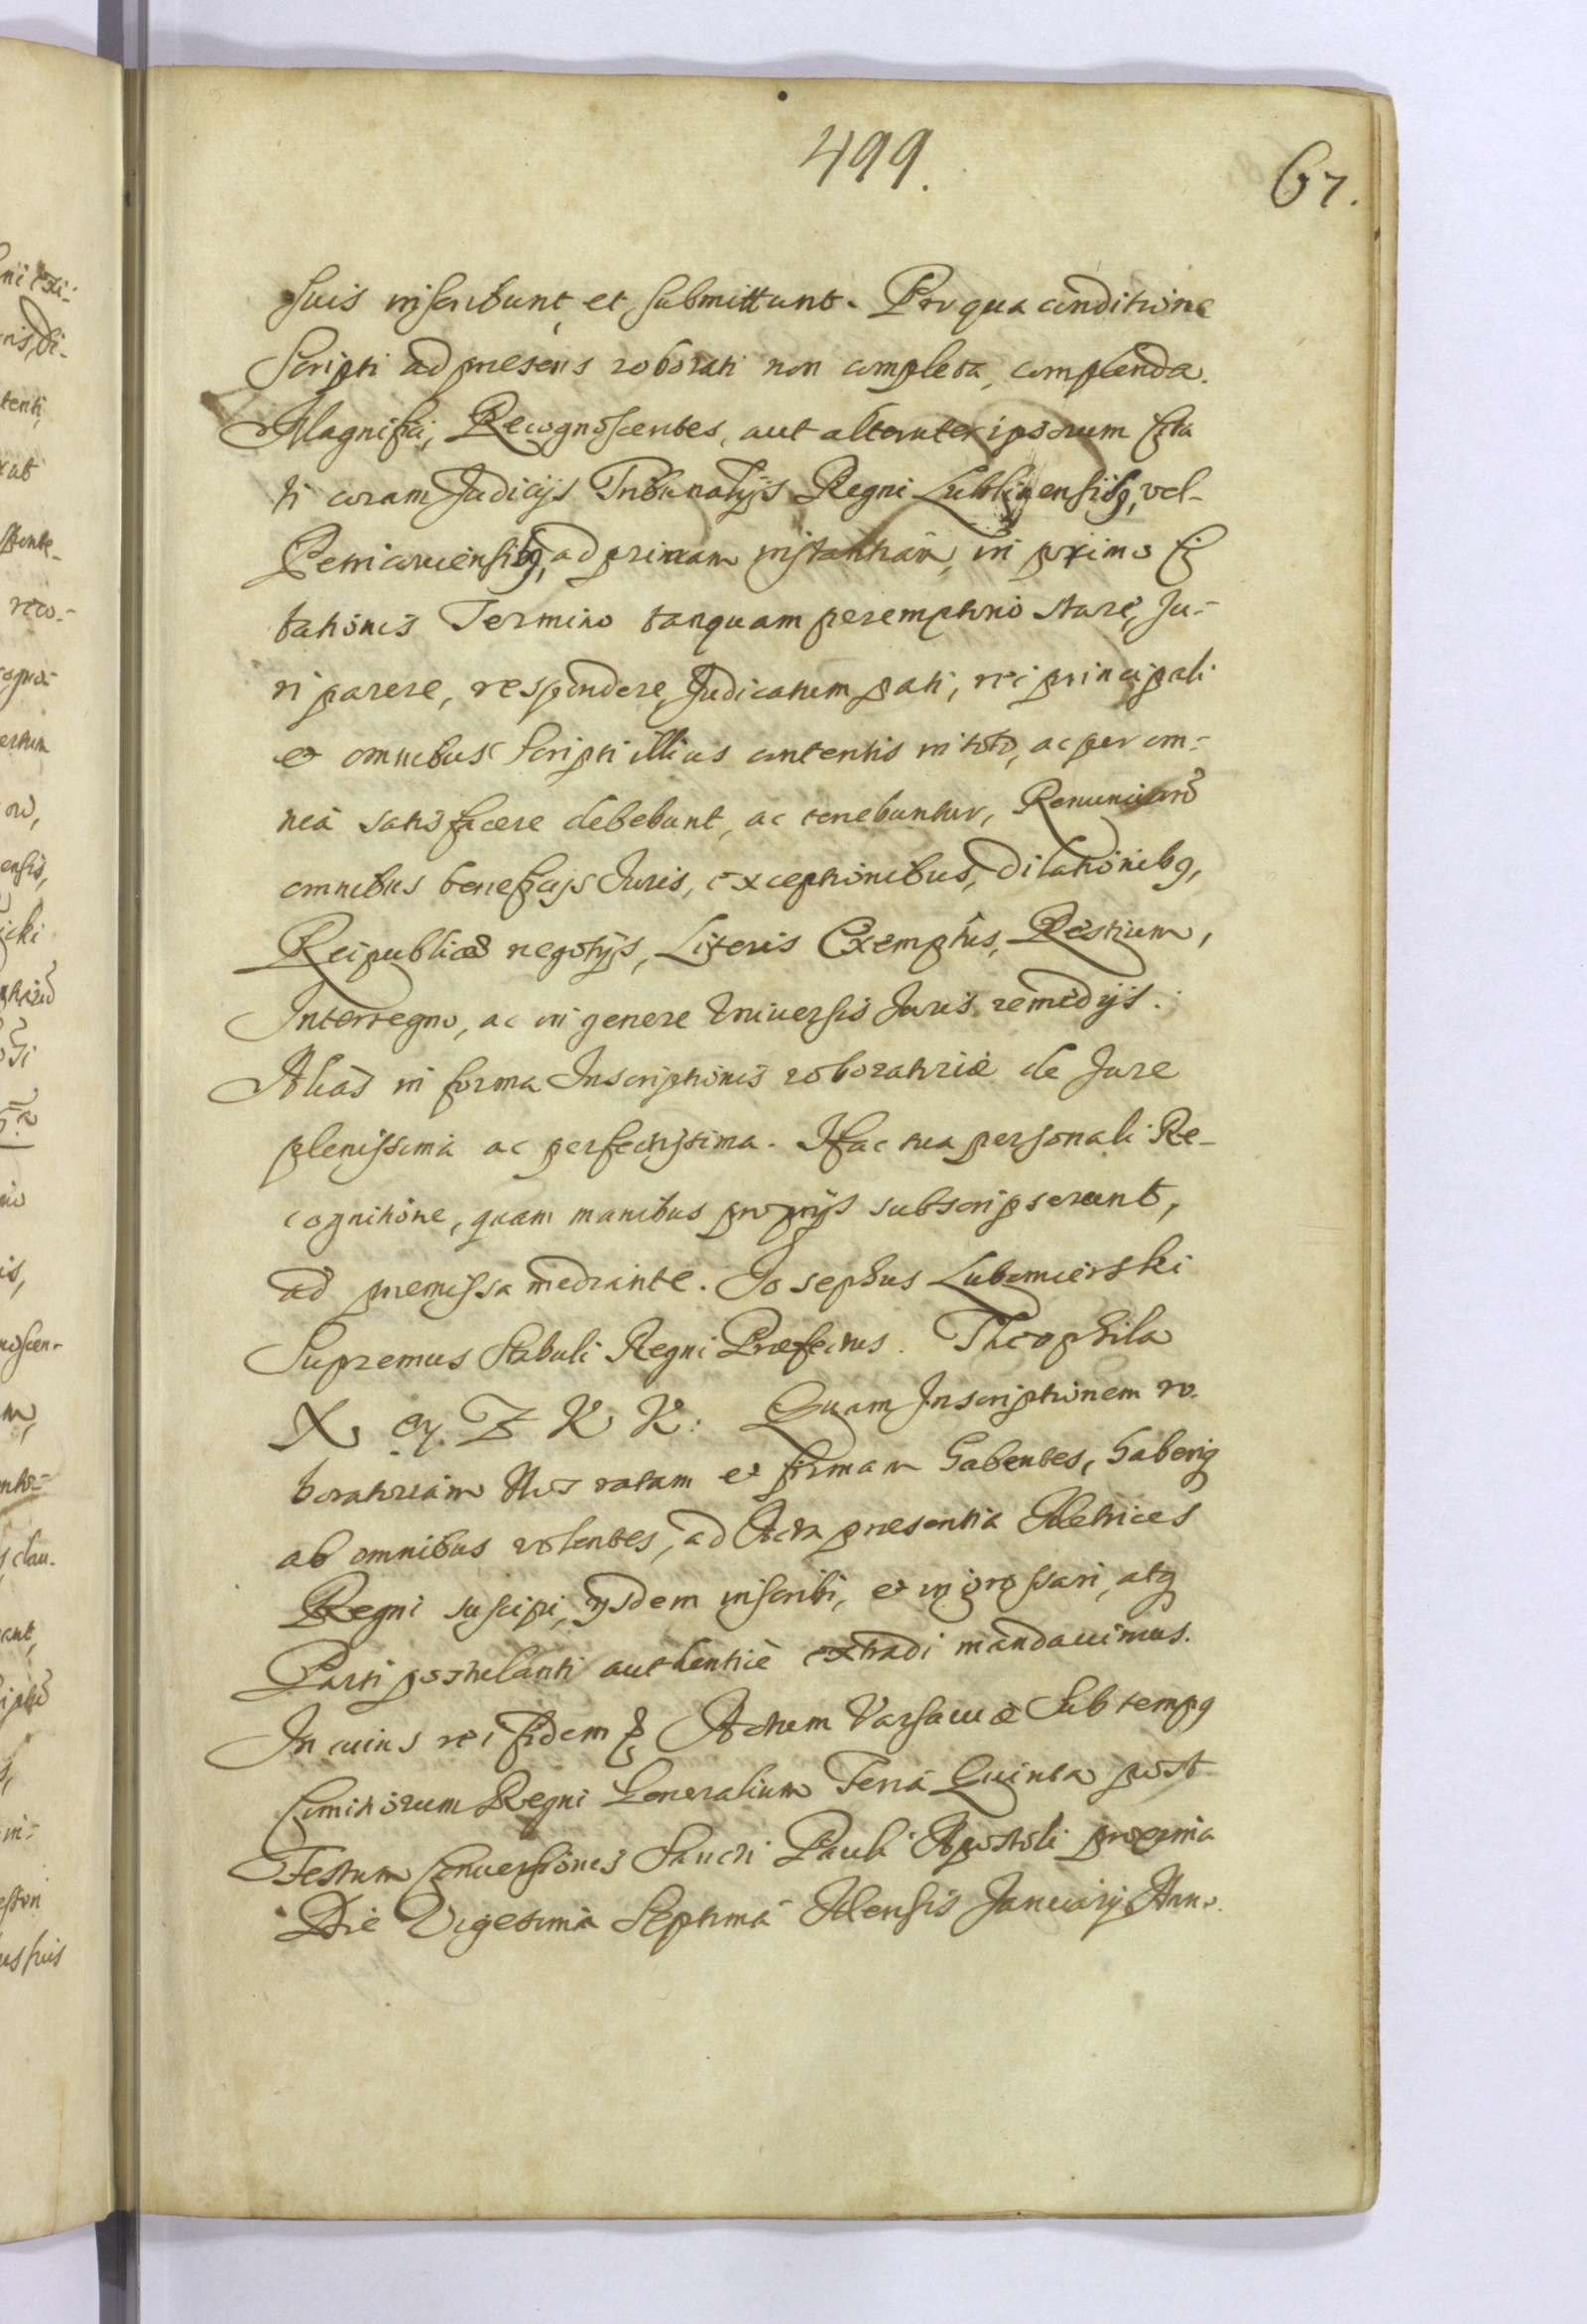 499.
67.
suis inscribunt, et submittunt. Pro qua conditione
Scripti ad præsens roborati non completa, complenda.
Magnifici, Recognoscentes, aut alteruter ipsorum Cita
ti coram Judicijs Tribunalijs Regni Lublinensibq, vel
Petricouiensibq, ad primam instantiam, in pximo Ci
tationis Termino tanquam peremptorio stare, Ju-
ri parere, respondere, Judicatum pati, rei principali
et omnibus Scripti illius contentis in toto, ac per om-
nia satisfacere debebunt, ac tenebuntur, Renunciando
omnibus beneficijs Juris, exceptionibus, dilationibq,
Reipublicæ negotijs, Literis Exemptus, Restium,
Interregno, ac in genere Vniuersis Juris remedijs.
Alias in forma Inscriptionis roboratoriæ de Jure
plenissima ac perfectissima. Hac sua personali Re-
cognitione, quam manibus proprijs subscripserunt,
ad premissa mediante. Josephus Lubomierski
Supremus Stabuli Regni Præfectus. Theophila
X. Z K K: Quam Inscriptionem ro.
boratoriam Nos ratam et firmam habentes, haberiq
ab omnibus volentes, ad Acta præsentia Metrices
Regni suscipi, ijsdem inscribi, et ingrossari, atq
Parti postulanti authenticè extradi mandauimus.
In cuius rei fidem &c Actum Varsauiæ Sub tempq
Comitiorum Regni Generalium Feria Quinta post
Festum Conuersionis Sancti Pauli Apostoli proxima
Die Vigesima Septima Mensis Januarij Anno.